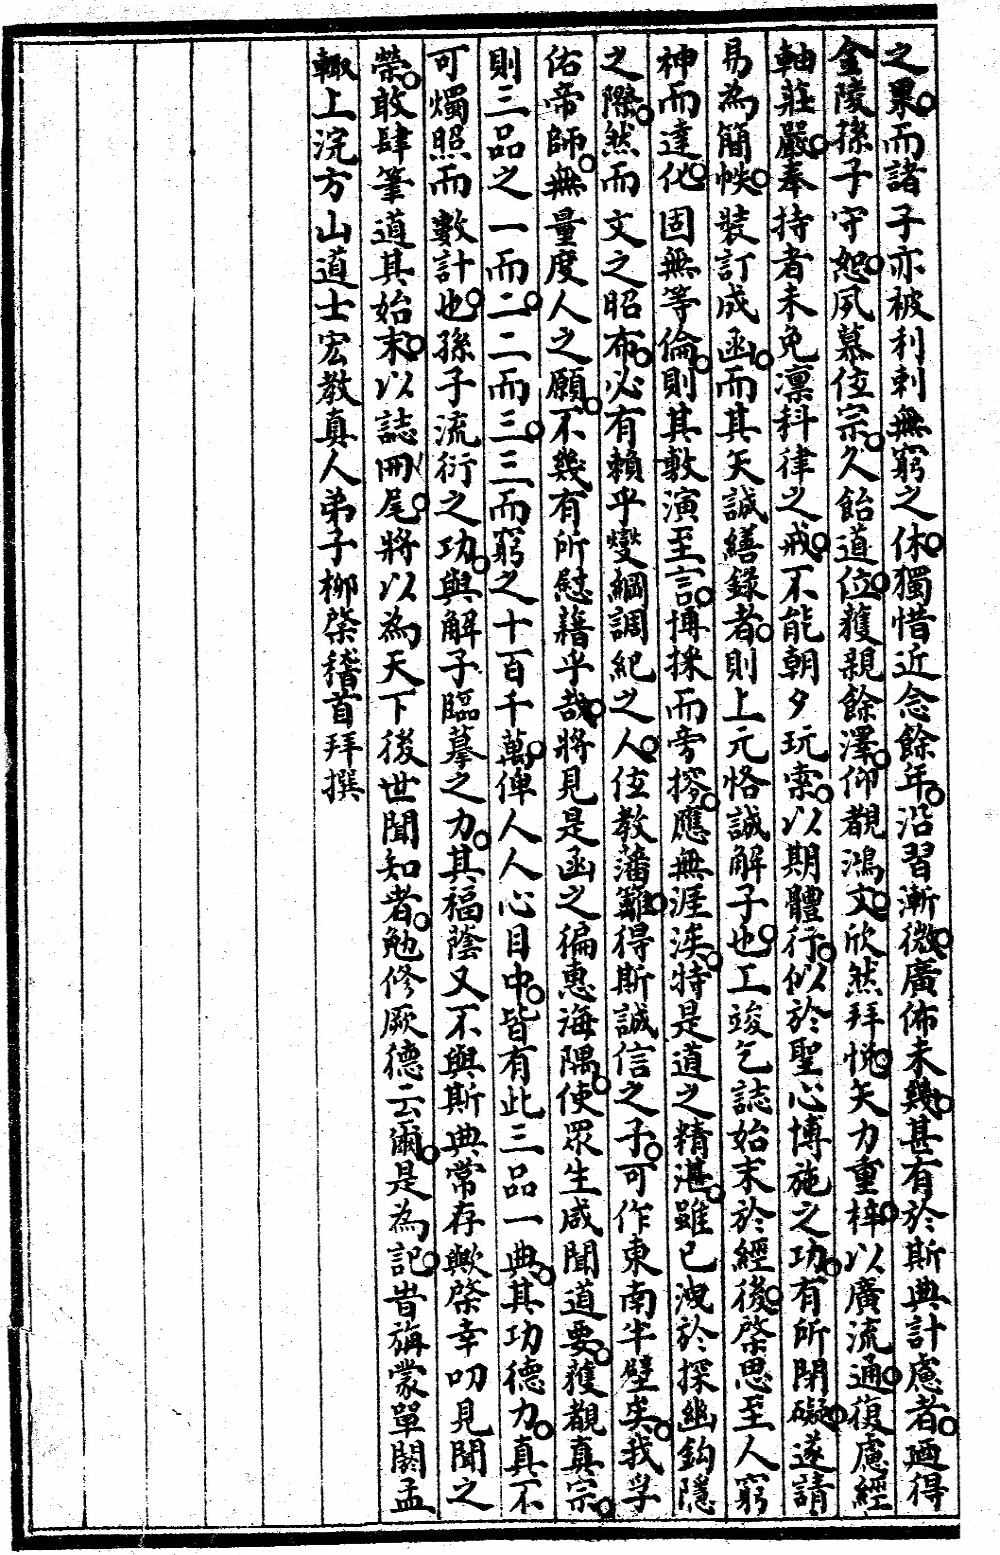 之果而諸子亦被利剌無窮之休獨惜近念餘年沿習漸微廣佈未幾甚有於斯典計慮者廼得
金陵孫子守恕夙慕位宗久飴道位獲親餘澤仰覩鴻文欣然拜悅矢力重梓以廣流通復慮經
軸莊嚴奉持者未免凜科律之戒不能朝夕玩索以期體行似於聖心博施之功有所閉礙遂請
易為簡帙裝訂成函而其矢誠繕錄者則上元恪誠解子也工竣乞誌始末於經後棨思至人窮
神而達化固無等倫則其敷演至言博採而旁搜應無涯涘特是道之精湛雖已洩於探幽鈎隱
之際然而文之昭布必有賴乎燮綱調紀之人位教藩籬得斯誠信之子可作東南半壁矣我孚
佑帝師無量度人之願不幾有所慰藉乎哉將見是函之徧惠海隅使眾生咸聞道要獲覩真宗
則三品之一而二二而三三而窮之十百千萬俾人人心目中皆有此三品一典其功德力真不
可燭照而數計也孫子流衍之功與解子臨摹之力其福蔭又不與斯典常存歟棨幸叨見聞之
榮敢肆筆道其始末以誌冊尾將以為天下後世聞知者勉修厥德云爾是為記旹旃蒙單閼孟
輙上浣方山道士宏教真人弟子柳棨稽首拜撰